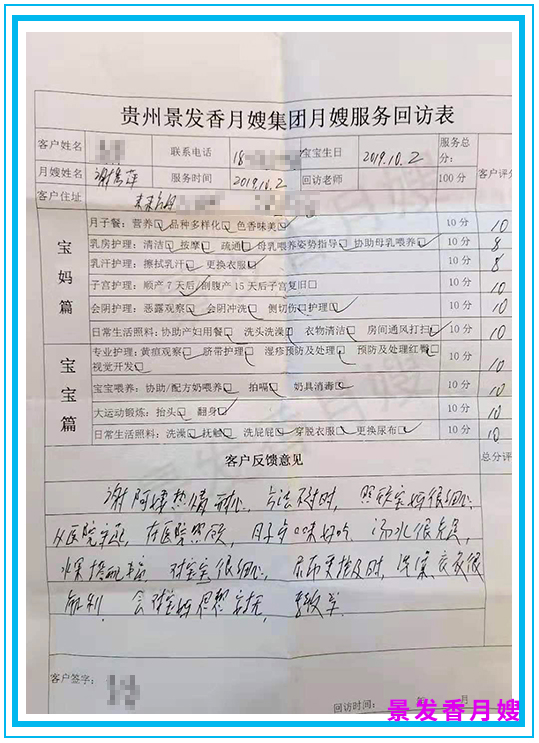 贵州景发香月嫂集团月嫂服务回访表
客户姓名 联系电话 18 宝宝生日 2019.10.2 服务总分: 客户评分
月嫂姓名 服务时间 2019.10.2 回访老师 100分
客户住址
宝妈篇
月子餐:营养□ 品种多样化□ 色香味美□ 10分 10
乳房护理:清洁□ 按摩□ 疏通□ 母乳喂养姿势指导□ 协助母乳喂养□ 10分 8
乳汗护理:擦拭乳汗□ 更换衣服□ 10分 8
子宫护理:顺产7天后/剖腹产15天后子宫复旧□ 10分 10
会阴护理:恶露观察□ 会阴冲洗□ 侧切伤口护理□ 10分 10
日常生活照料:协助产妇用餐□ 洗头洗澡□ 衣物清洁□ 房间通风打扫□ 10分 10
宝宝篇
专业护理:黄疸观察□ 脐带护理□ 湿疹预防及处理□ 预防及处理红臀□
视觉开发□ 10分 10
宝宝喂养:协助/配方奶喂养□ 拍嗝□ 奶具消毒□ 10分 10
大运动锻炼:抬头□ 翻身□ 10分 10
日常生活照料:洗澡□ 抚触□ 洗屁屁□ 穿脱衣服□ 更换尿布□ 10分 10
客户反馈意见 总分评
谢阿姨热情耐心, 照顾宝妈很细心
从医院 在医院照顾, 月子餐口味好吃, 汤水很充足,
水果搭配 对宝宝很细心, 及时, 洗澡、衣衣很
会对宝妈思想
客户签字:
回访时间: 年 月
景发香月嫂